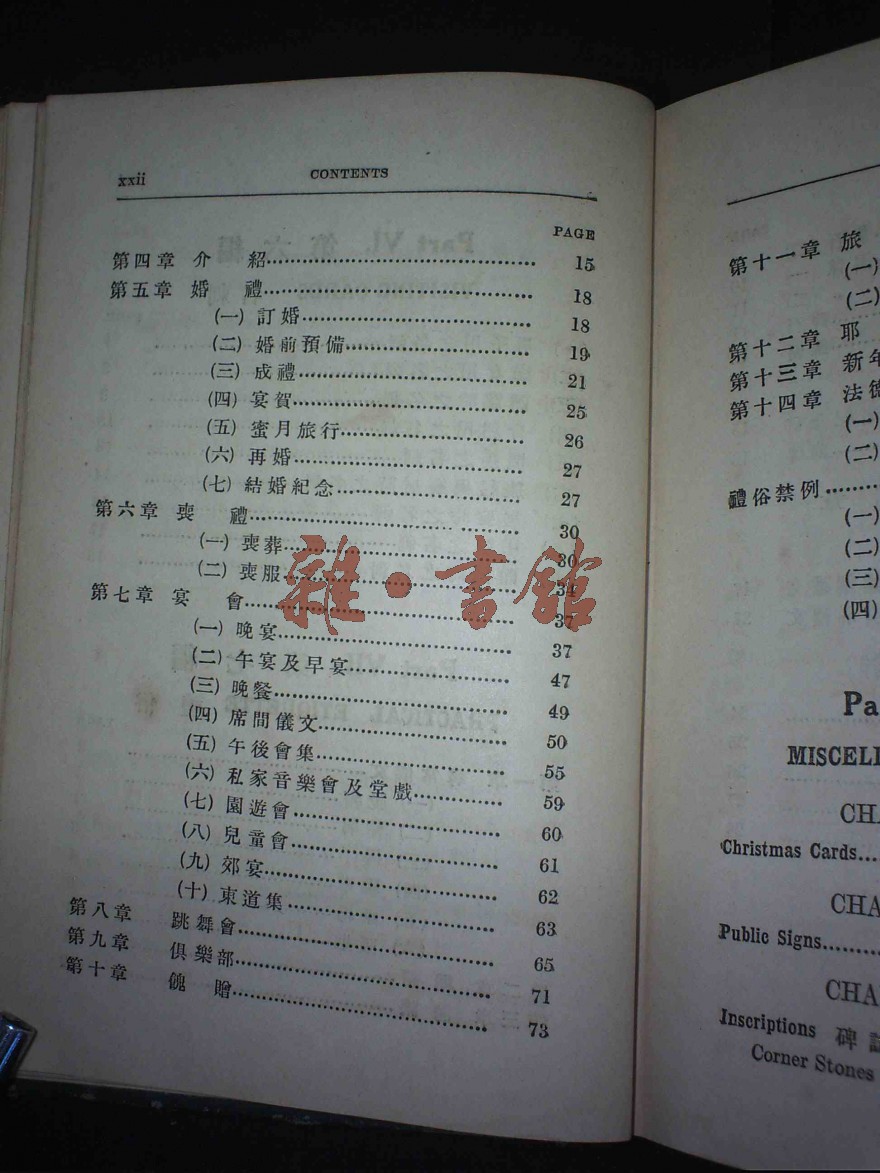 xxii CONTENTS
PAGE
第四章 介 紹 15
第五章 婚 禮 18
(一) 訂婚 18
(二) 婚前預備 19
(三) 成禮 21
(四) 宴賀 25
(五) 蜜月旅行 26
(六) 再婚 27
(七) 結婚紀念 27
第六章 喪 禮 30
(一) 喪葬 30
(二) 喪服 34
第七章 宴 會 37
(一) 晚宴 37
(二) 午宴及早宴 47
(三) 晚餐 49
(四) 席間儀文 50
(五) 午後會集 55
(六) 私家音樂會及堂戲 59
(七) 園遊會 60
(八) 兒童會 61
(九) 郊宴 62
(十) 東道集 63
第八章 跳舞會 65
第九章 俱樂部 71
第十章 餽 贈 73
雜·書館
第十一章 旅
(一)
(二)
第十二章 耶
第十三章 新年
第十四章 法德
(一)
(二)
禮俗禁例
(一)
(二)
(三)
(四)
Pa
MISCELL
CHA
Christmas Cards
CHA
Public Signs
CHA
Inscriptions 碑
Corner Stones